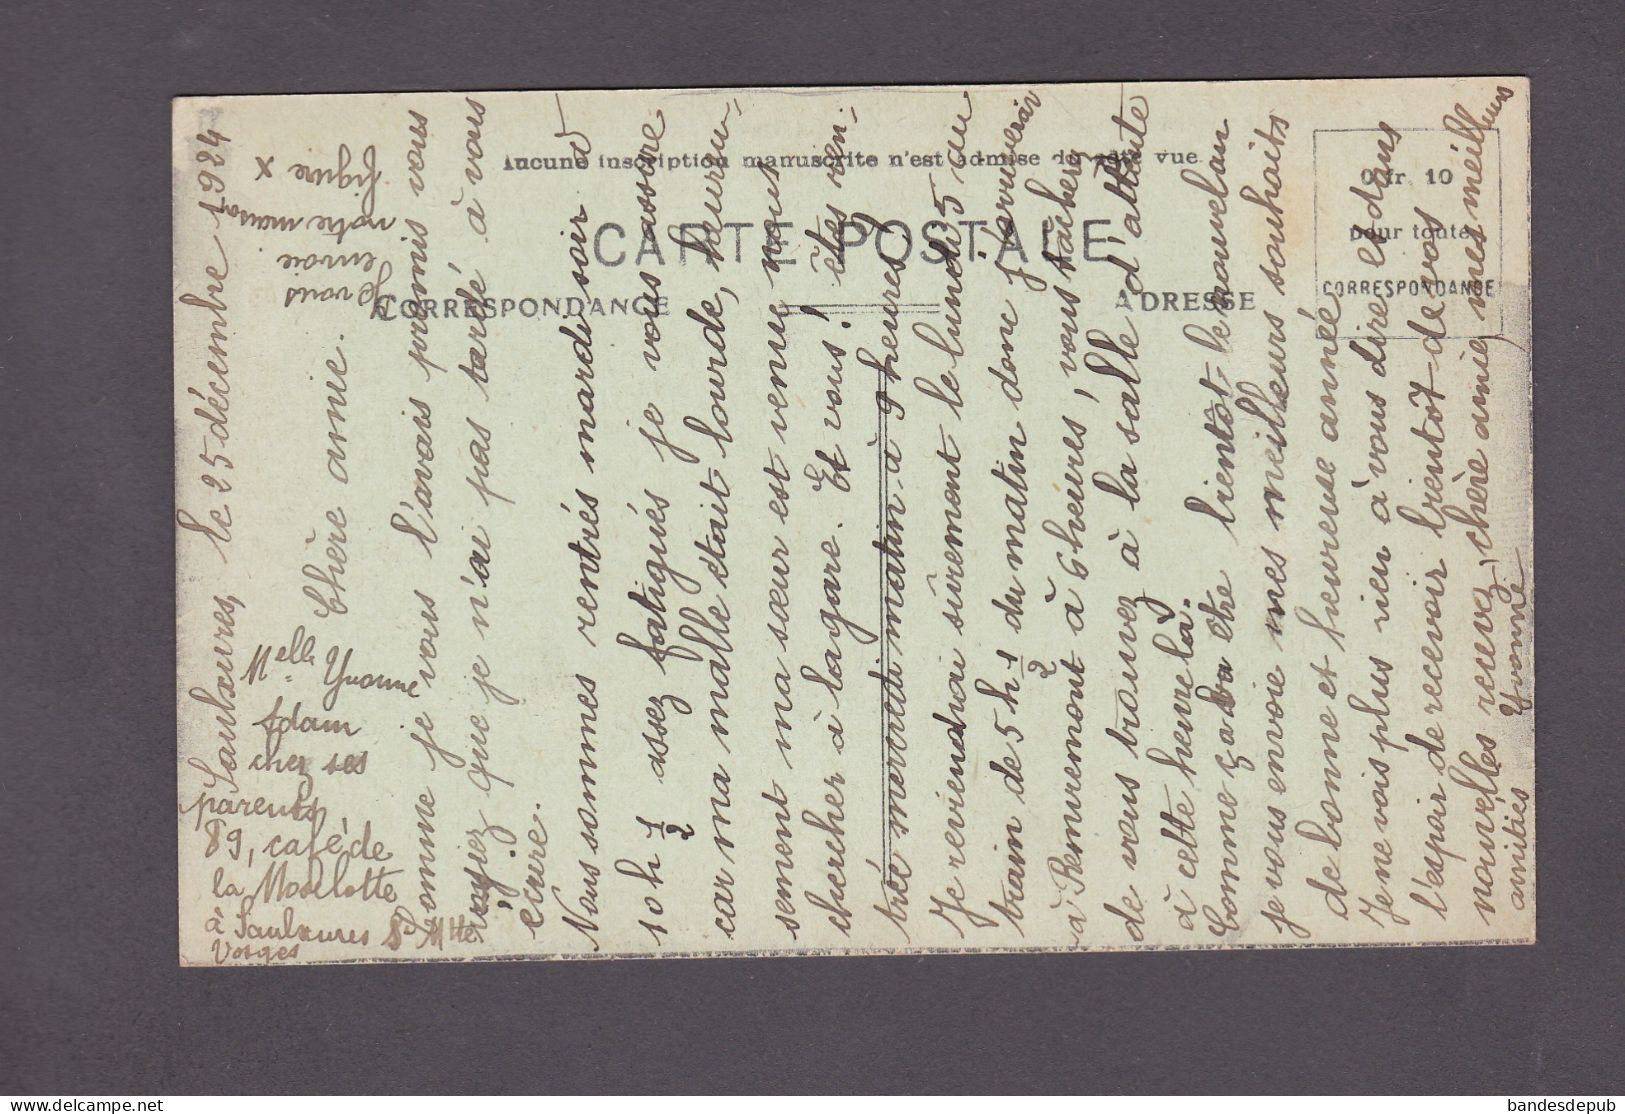 Aucune inscription manuscrite n'est admise du côté vue
CARTE POSTALE
CORRESPONDANCE
ADRESSE
0 fr. 10
pour toute
CORRESPONDANCE
Saulxures, le 25 décembre 1924
Chère amie.
Comme je vous l'avais promis vous
voyez que je n'ai pas tardé à vous
écrire.
Nous sommes rentrés mardi soir à
10 h 1/2 assez fatigués je vous assure
car ma malle était lourde, heureu-
sement ma sœur est venue nous
chercher à la gare. Et vous! êtes ren-
trée mercredi matin à 9 heures?
Je reviendrai sûrement le lundi 5 au
train de 5 h 1/2 du matin donc j'arriverai
à Remiremont à 6 heures, vous tâcherez
de vous trouvez à la salle d'attente
à cette heure là.
Comme ça va être bientôt le nouvel an
je vous envoie mes meilleurs souhaits
de bonne et heureuse année
Je ne vois plus rien à vous dire et dans
l'espoir de recevoir bientôt de vos
nouvelles recevez, chère amie, mes meilleures
amitiés Yvonne
Melle Yvonne
Adam
chez ses
parents
89, café de
la Modlotte
à Saulxures s/ Mtte
Vosges
Je vous
envoie
notre maison
figure x
bandesdepub